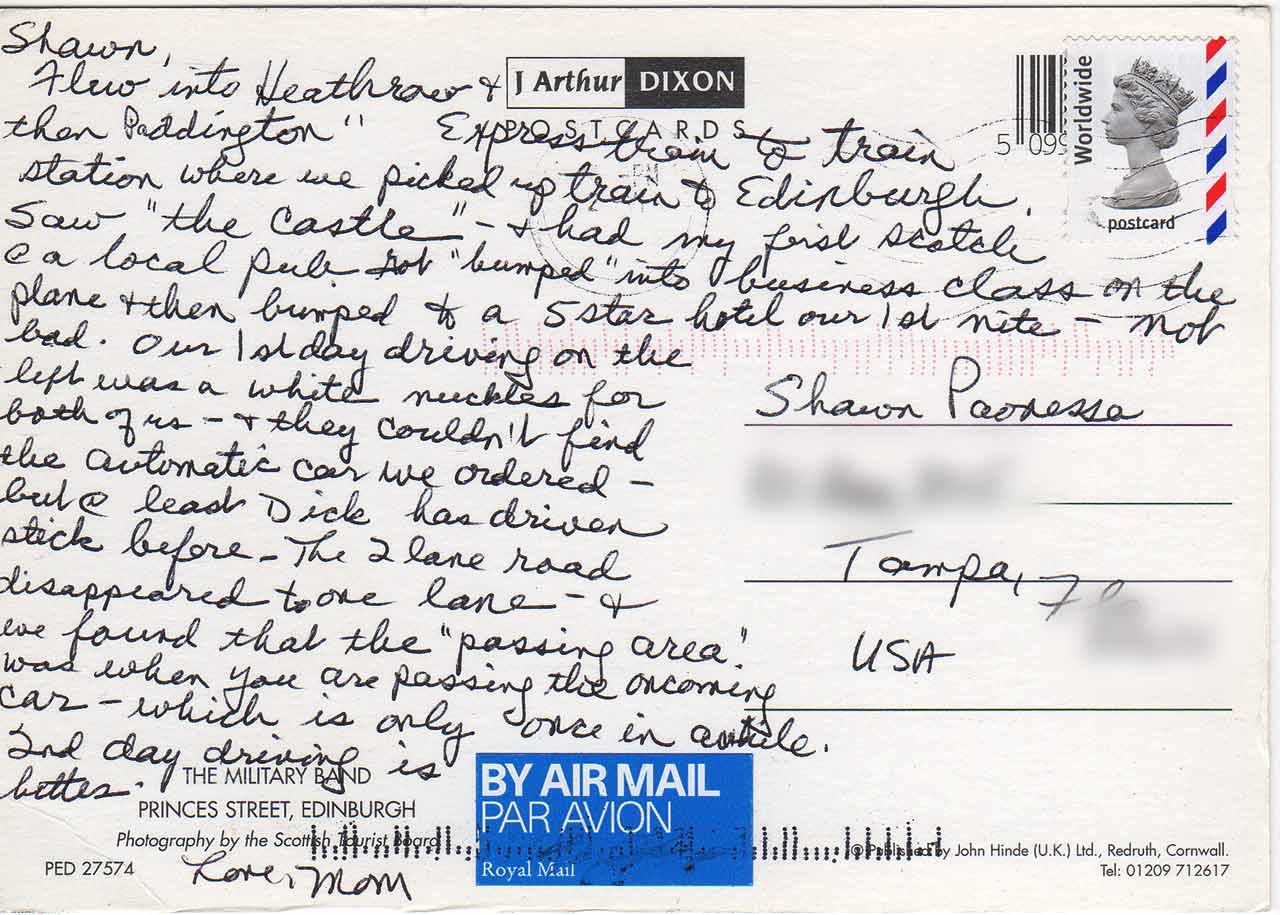 Shawn,
Flew into Heathrow &
then Paddington " Express train to train
station where we picked up train to Edinburgh.
Saw "the castle" - & had my first scotch
@ a local pub Got "bumped" into business class on the
plane & then bumped to a 5 star hotel our 1st nite - not
bad. Our 1st day driving on the
left was a white nuckles for
both of us - & they couldn't find
the automatic car we ordered -
but @ least Dick has driven
stick before - The 2 lane road
disappeared to one lane - &
we found that the "passing area"
was when you are passing the oncoming
car - which is only once in awhile.
2nd day driving is
better.
Love, Mom
J Arthur DIXON
POSTCARDS
5 099
Worldwide
postcard
Shawn Paonessa
Tampa, Fla
USA
THE MILITARY BAND
PRINCES STREET, EDINBURGH
Photography by the Scottish Tourist Board
PED 27574
BY AIR MAIL
PAR AVION
Royal Mail
© Published by John Hinde (U.K.) Ltd., Redruth, Cornwall.
Tel: 01209 712617